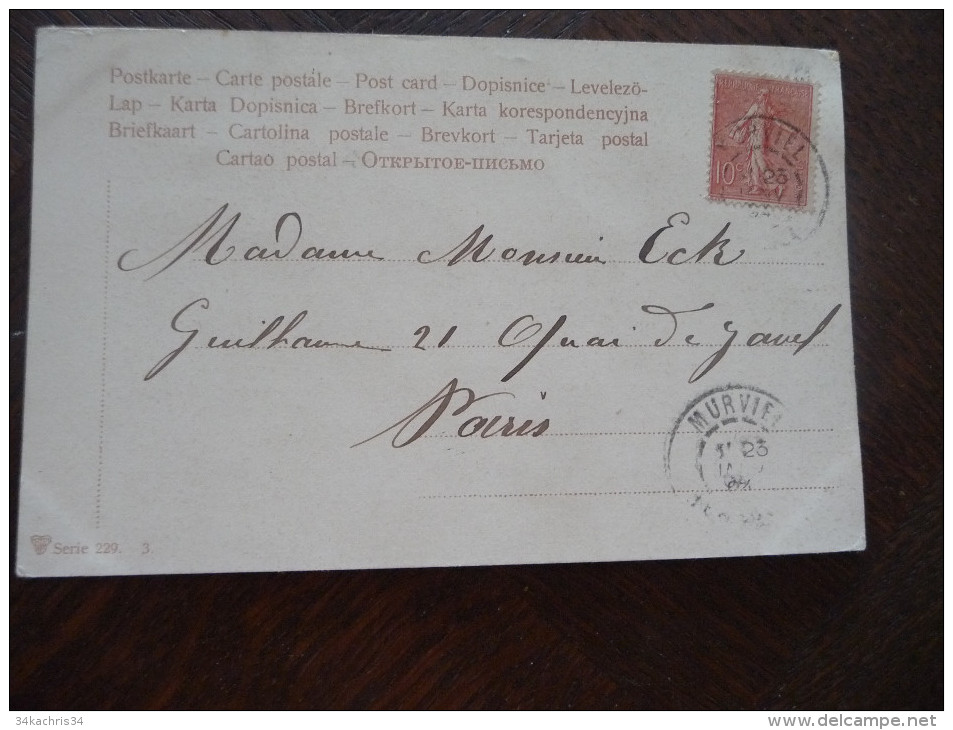 Postkarte – Carte postale – Post card – Dopisnice – Levelező-
Lap – Karta Dopisnica – Brefkort – Karta korespondencyjna
Briefkaart – Cartolina postale – Brevkort – Tarjeta postal
Cartao postal – Открытое-письмо
10c
23
Madame Monsieur Eck
Guilhaume 21 Quai de Javel
Paris
MURVIEL
23
Serie 229. 3.
34kachris34
www.delcampe.net